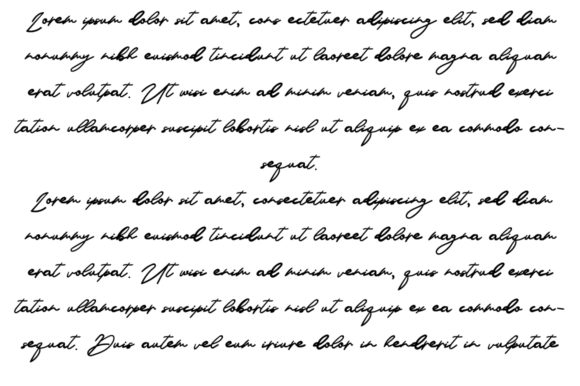 Lorem ipsum dolor sit amet, cons ectetuer adipiscing elit, sed diam
nonummy nibh euismod tincidunt ut laoreet dolore magna aliquam
erat volutpat. Ut wisi enim ad minim veniam, quis nostrud exerci
tation ullamcorper suscipit lobortis nisl ut aliquip ex ea commodo con-
sequat.
Lorem ipsum dolor sit amet, consectetuer adipiscing elit, sed diam
nonummy nibh euismod tincidunt ut laoreet dolore magna aliquam
erat volutpat. Ut wisi enim ad minim veniam, quis nostrud exerci
tation ullamcorper suscipit lobortis nisl ut aliquip ex ea commodo con-
sequat. Duis autem vel eum iriure dolor in hendrerit in vulputate